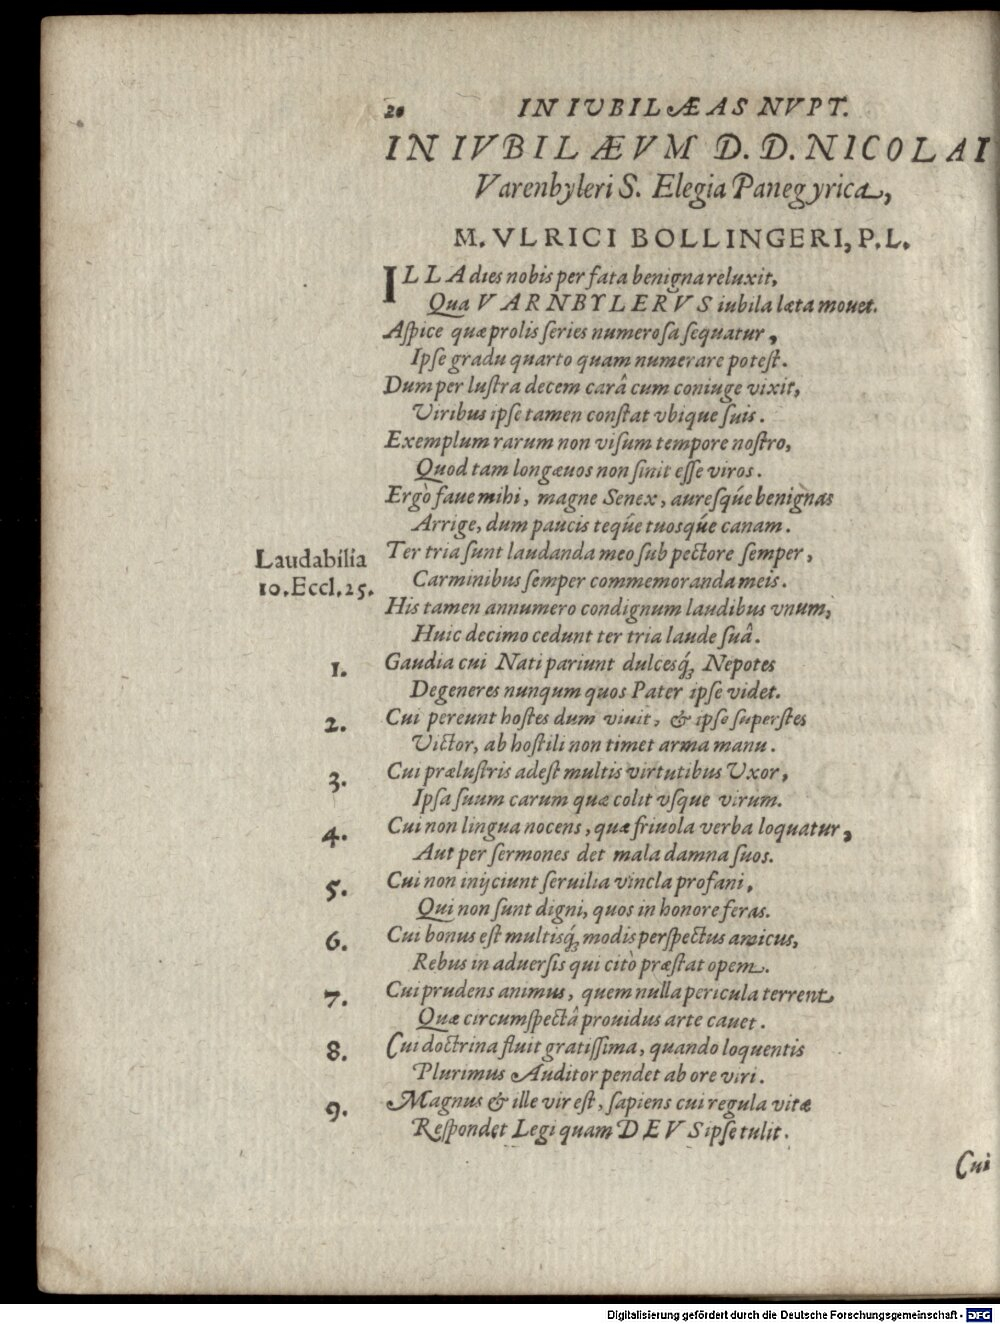 20 IN IVBILÆAS NVPT.
IN IVBILÆVM D. D. NICOLAI
Varenbyleri S. Elegia Panegyrica,
M. VLRICI BOLLINGERI, P. L.
ILLA dies nobis per fata benigna reluxit,
Qua VARNBYLERVS iubila læta mouet.
Aſpice quæ prolis ſeries numeroſa ſequatur,
Ipſe gradu quarto quam numerare poteſt.
Dum per luſtra decem carâ cum coniuge vixit,
Viribus ipſe tamen conſtat vbique ſuis.
Exemplum rarum non viſum tempore noſtro,
Quod tam longæuos non ſinit eſſe viros.
Ergò faue mihi, magne Senex, aureſq́ue benignas
Arrige, dum paucis teq́ue tuosq́ue canam.
Laudabilia
10. Eccl. 25.
Ter tria ſunt laudanda meo ſub pectore ſemper,
Carminibus ſemper commemoranda meis.
His tamen annumero condignum laudibus vnum,
Huic decimo cedunt ter tria laude ſuâ.
1. Gaudia cui Nati pariunt dulcesq́; Nepotes
Degeneres nunqum quos Pater ipſe videt.
2. Cui pereunt hoſtes dum viuit, & ipſe ſuperſtes
Victor, ab hoſtili non timet arma manu.
3. Cui præluſtris adeſt multis virtutibus Uxor,
Ipſa ſuum carum quæ colit vſque virum.
4. Cui non lingua nocens, quæ friuola verba loquatur,
Aut per ſermones det mala damna ſuos.
5. Cui non inijciunt ſeruilia vincla profani,
Qui non ſunt digni, quos in honore feras.
6. Cui bonus eſt multisq́; modis perſpectus amicus,
Rebus in aduerſis qui citò præſtat opem.
7. Cui prudens animus, quem nulla pericula terrent
Quæ circumſpectâ prouidus arte cauet.
8. Cui doctrina fluit gratiſſima, quando loquentis
Plurimus Auditor pendet ab ore viri.
9. Magnus & ille vir eſt, ſapiens cui regula vitæ
Reſpondet Legi quam DEVS ipſe tulit.
Cui
Digitalisierung gefördert durch die Deutsche Forschungsgemeinschaft - DFG